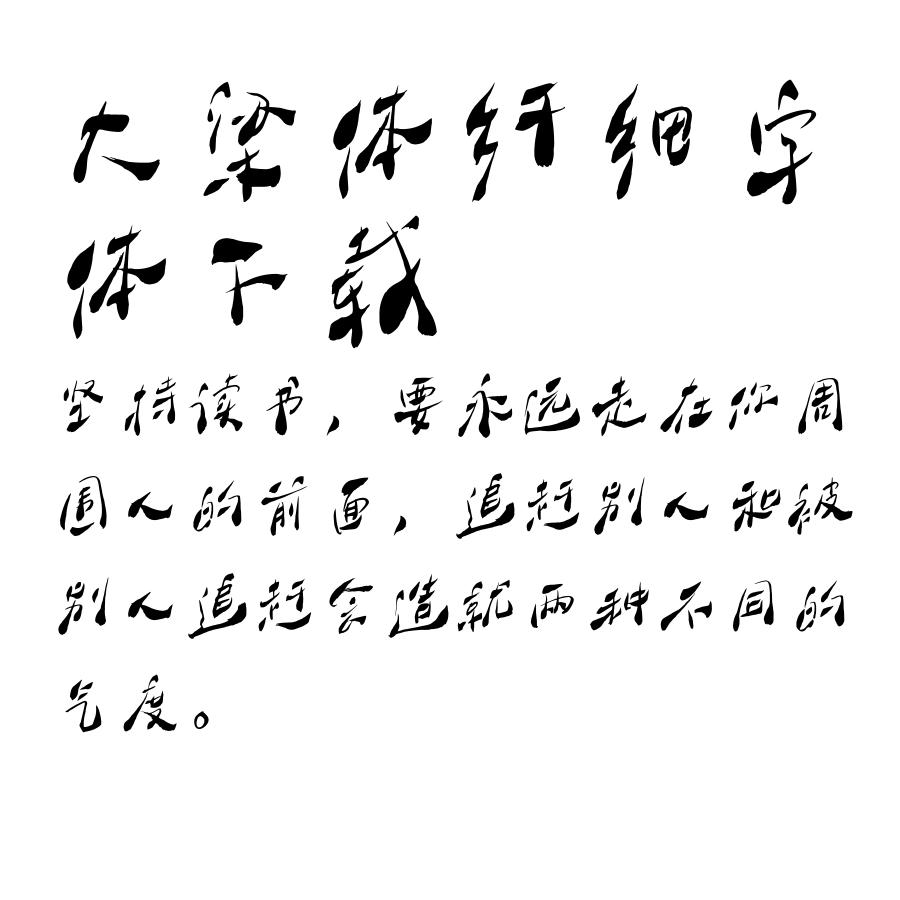 大梁体纤细字
体下载
坚持读书，要永远走在你周
围人的前面，追赶别人和被
别人追赶会造就两种不同的
气度。